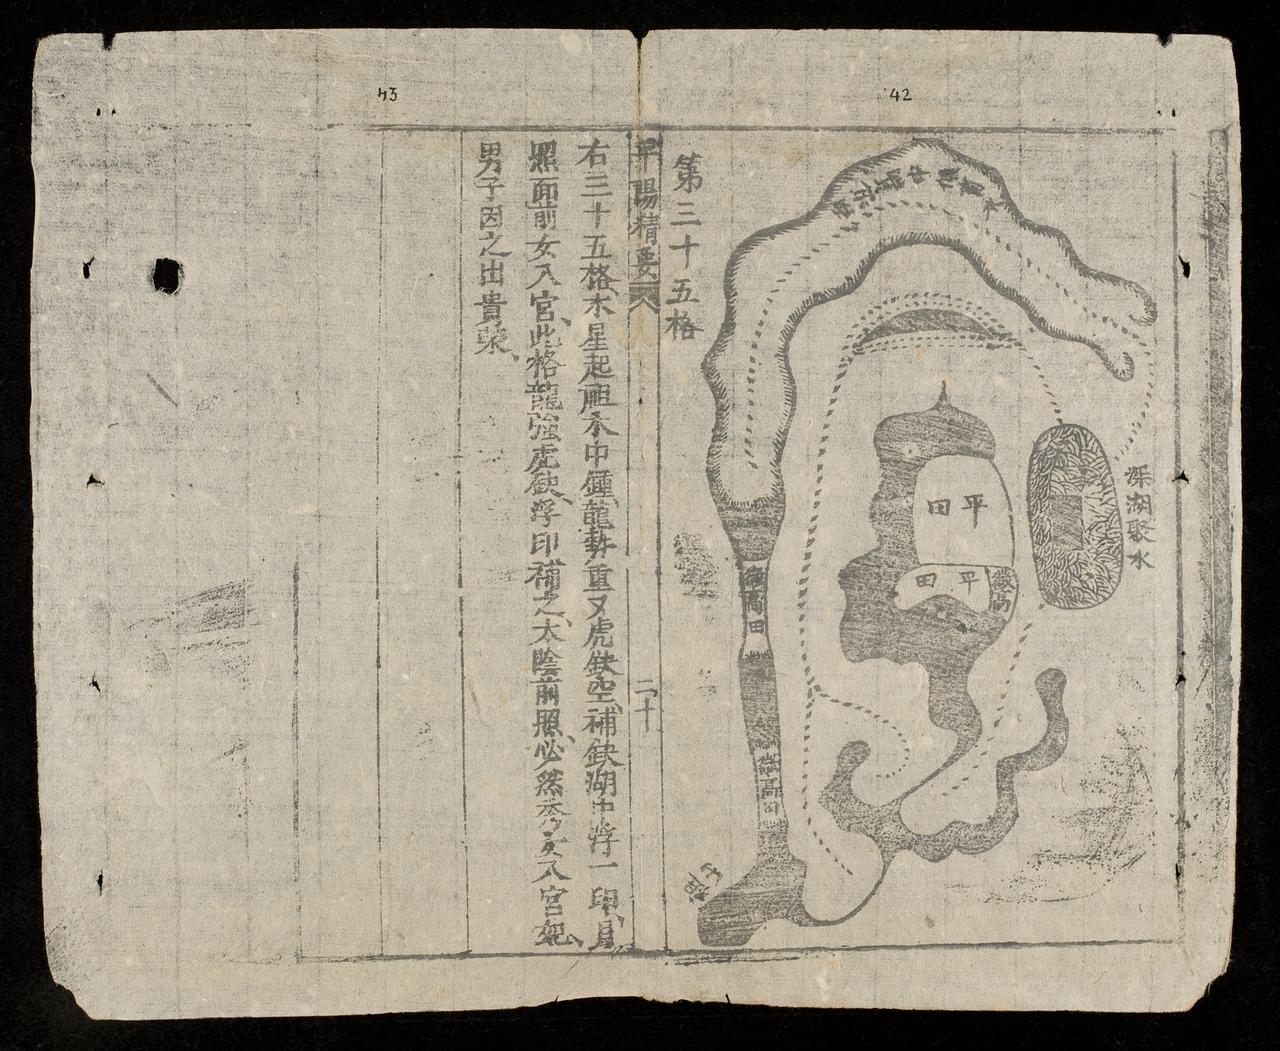 42
第三十五格
深湖聚水
平田
平田
微高
微高田
微高田
祖山
平陽精要
二十
43
右三十五格水星起祖水中鍾龍勢重又虎缺空補缺湖中浮一印月
照面前女入宮此格龍強虎缺浮印補之太陰前照必然秀女入宮妃
男子因之出貴榮